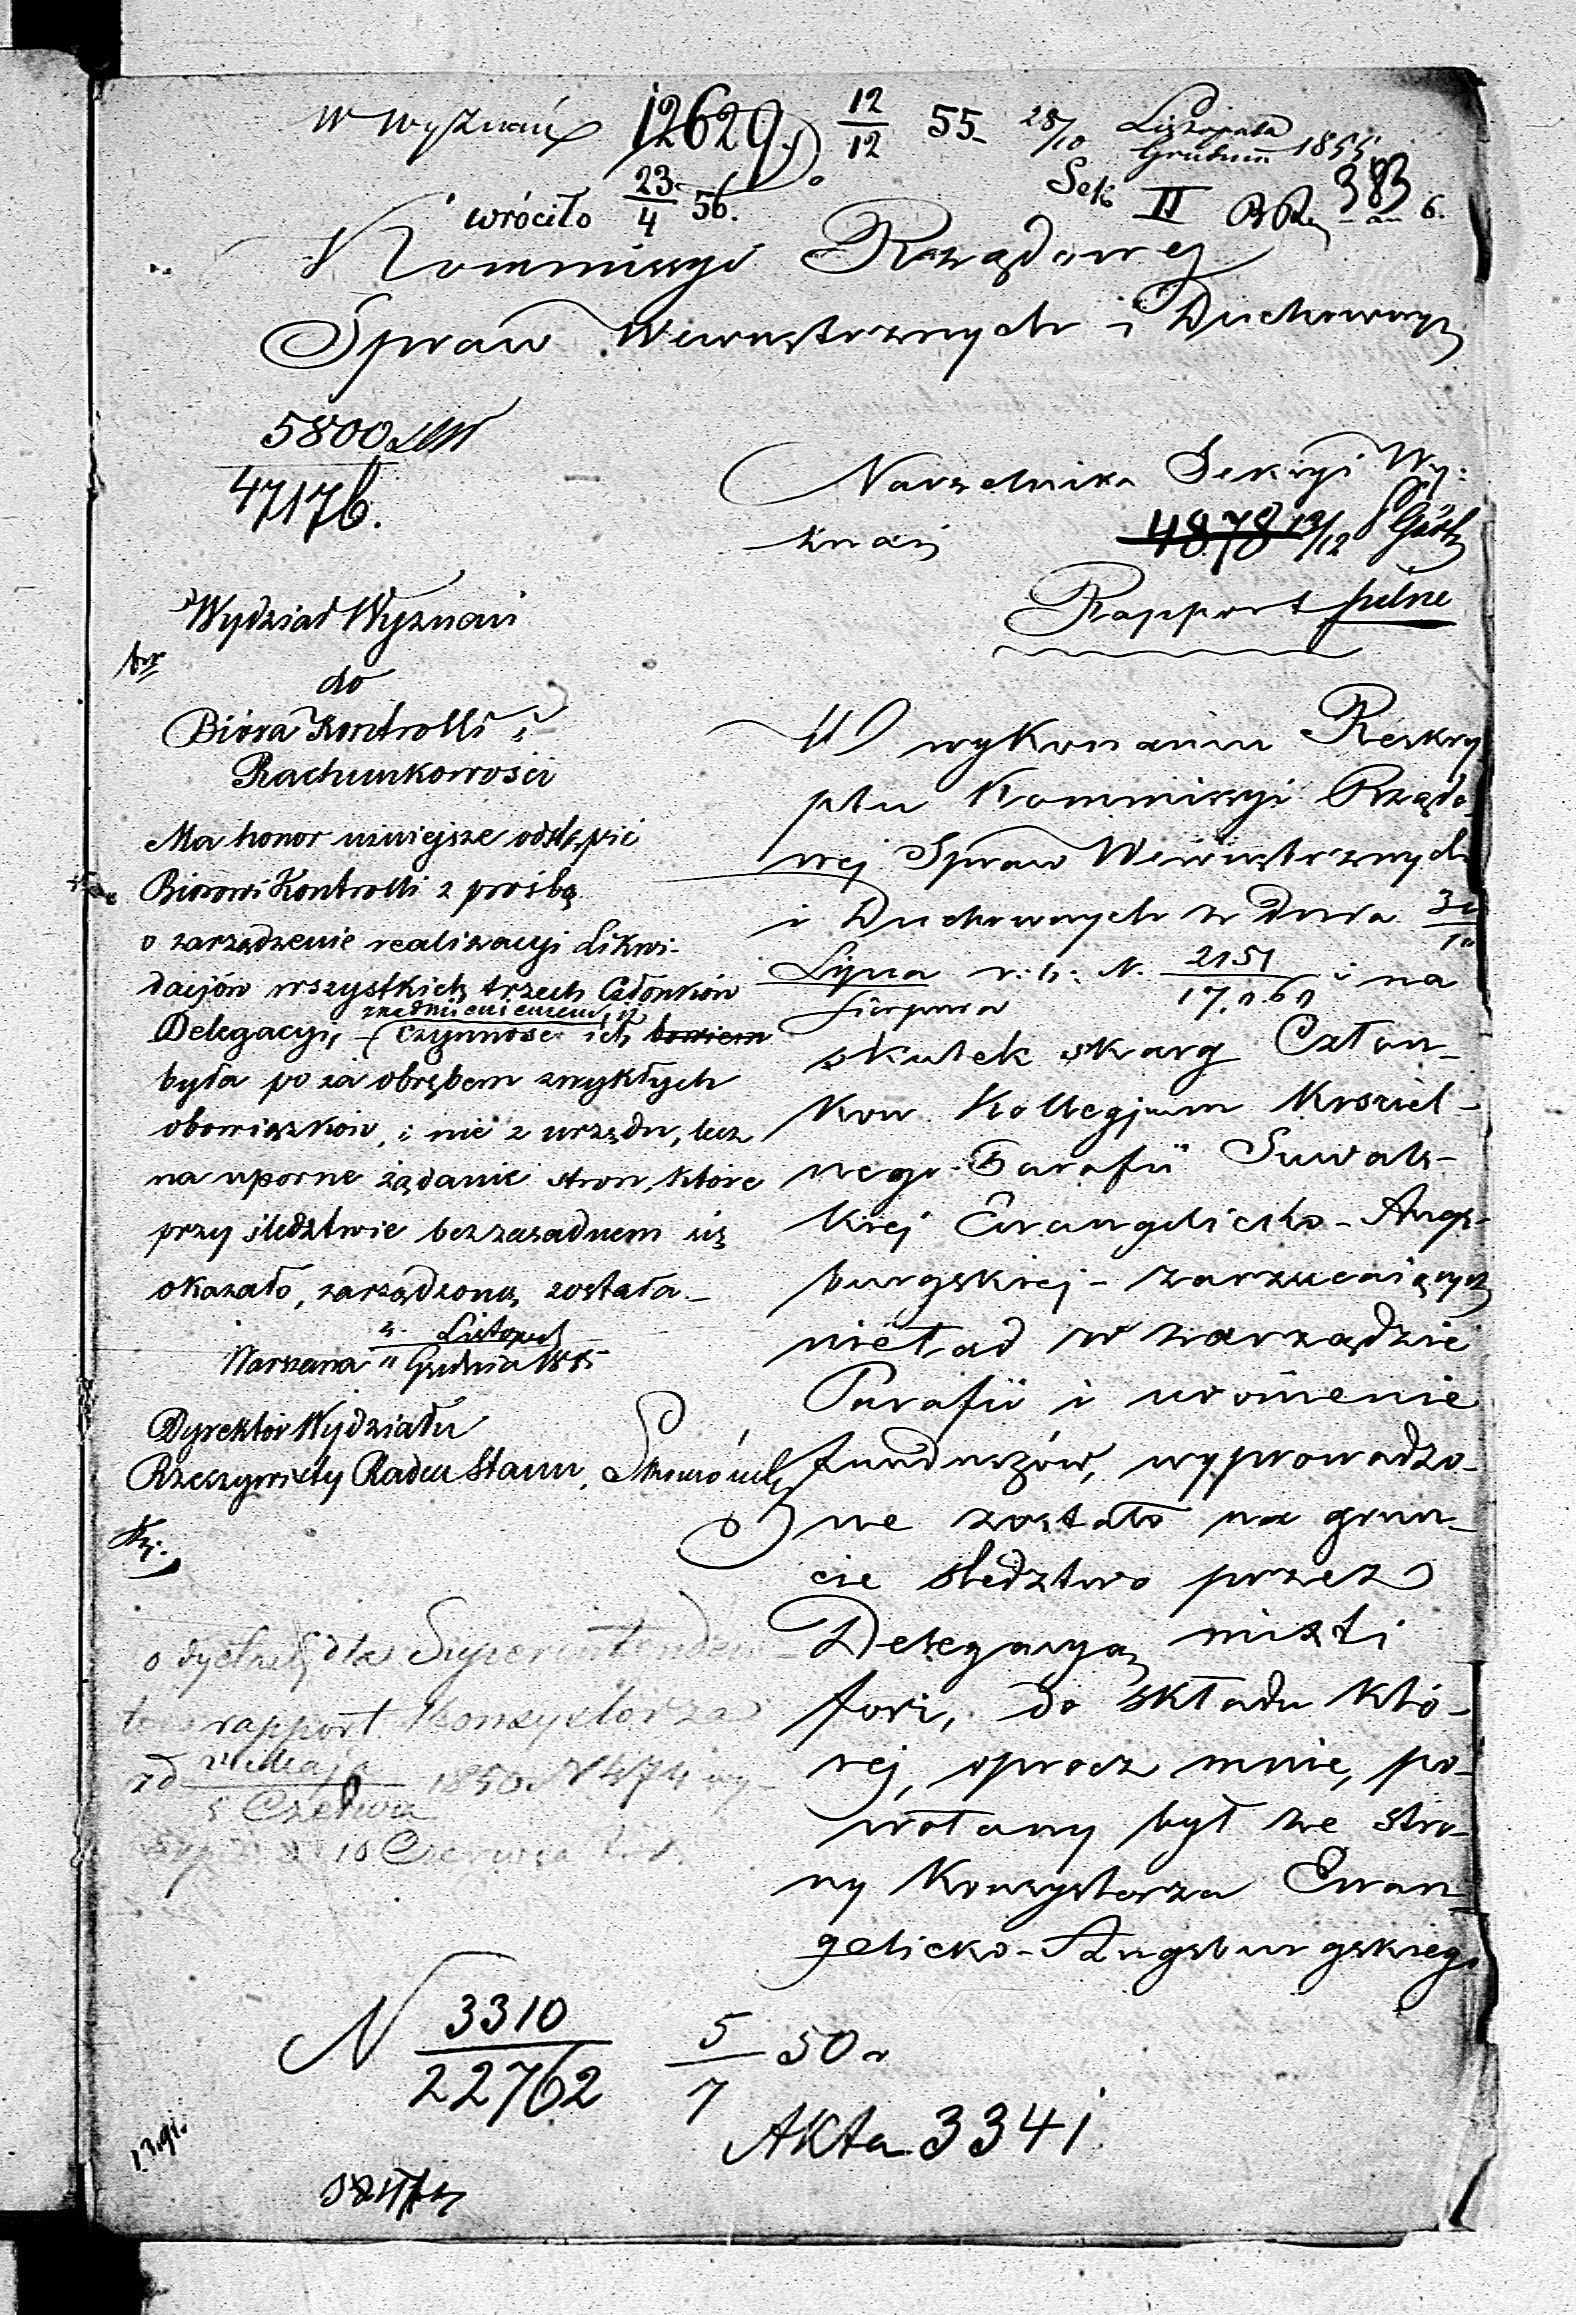 W Wyznań 12629. 12/12 55 28/10 Listopada
Grudnia 1855
wróciło 23/4 56. Sek II 383 6.
Kommissyi Rządowej
Spraw Wewnętrznych i Duchownych
5800
47176.
Naczelnika Sekcyi Wy-
znań 4878 13/12
Rapport pilne
Wydział Wyznań
do
Biura Kontrolli i
Rachunkowości
Ma honor niniejsze odstąpić
Biurowi Kontrolli z prośbą
o zarządzenie realizacyi Likwi-
dacjów wszystkich trzech Członków
Delegacyi, z nadmieniem, iż czynność ich bowiem
była po za obrębem zwykłych
obowiązków, i nie z urzędu, lecz
na uporne żądanie stron, które
przy śledztwie bezzasadnem się
okazało, zarządzoną została.
Listopad
Warszawa Grudnia 1855
Dyrektor Wydziału
Rzeczywisty Radca Stanu,
W wykonaniu Reskry
ptu Kommissyi Rządo-
wej Spraw Wewnętrznych
i Duchownych z dnia 30/10
Lipca r. b. N. 2151 i na
Sierpnia
skutek skarg Człon-
ków Kollegjum Kościel-
nego Parafii Suwals-
kiej Ewangelicko-Augs-
burgskiej - zarzucających
nieład w zarządzie
Parafii i uronienie
funduszów, wyprowadzo-
ne zostało na grun-
cie śledztwo przez
Delegacyą mixti
fori, do składu któ-
rej, oprócz mnie, po-
wołany był ze stro-
ny Konsystorza Ewan-
gelicko-Augsburgskiego
dla Superintenden
rapport Konsystorza
Maja
5 Czerwca 1850 N 474
10 Czerwca
N 3310/22762 5/7 50 r
Akta 3341